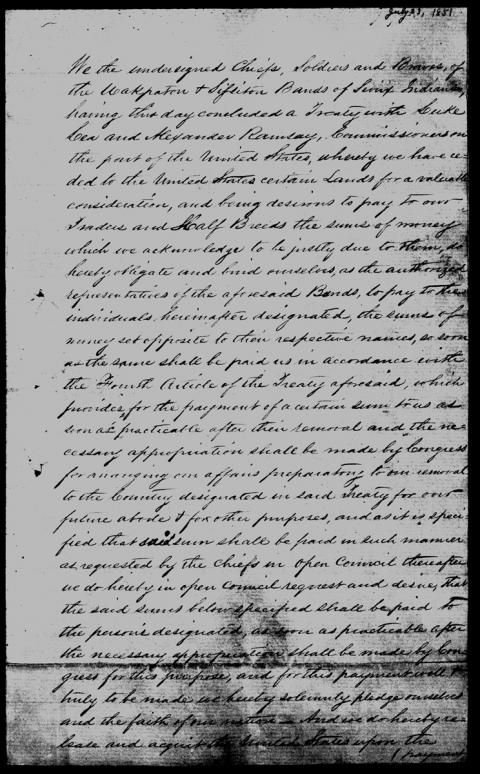 July 23, 1851
We the undersigned Chiefs, Soldiers and Braves, of
the Wakpaton & Sissiton Bands of Sioux Indians,
having this day concluded a Treaty with Luke
Lea and Alexander Ramsay, Commissioners on
the part of the United States, whereby we have ce-
ded to the United States certain Lands for a valuable
consideration, and being desirous to pay to our
Traders and Half Breeds the sums of money
which we acknowledge to be justly due to them, do
hereby obligate and bind ourselves, as the authorized
representatives of the aforesaid Bands, to pay to the
individuals hereinafter designated, the sums of
money set opposite to their respective names, so soon
as the same shall be paid us in accordance with
the Fourth Article of the Treaty aforesaid, which
provides, for the payment of a certain sum to us as
soon as practicable after their removal and the ne-
cessary appropriation shall be made by Congress
for arranging our affairs preparatory to our removal
to the Country designated in said Treaty for our
future abode & for other purposes, and as it is speci-
fied that said sum shall be paid in such manner
as requested by the Chiefs in Open Council thereafter
we do hereby in open Council request and desire, that
the said sums below specified shall be paid to
the persons designated, as soon as practicable after
the necessary appropriation shall be made by Con-
gress for this purpose, and for this payment well &
truly to be made we hereby solemnly pledge ourselves
and the faith of our nation — And we do hereby re-
lease and acquit the United States upon the
payment